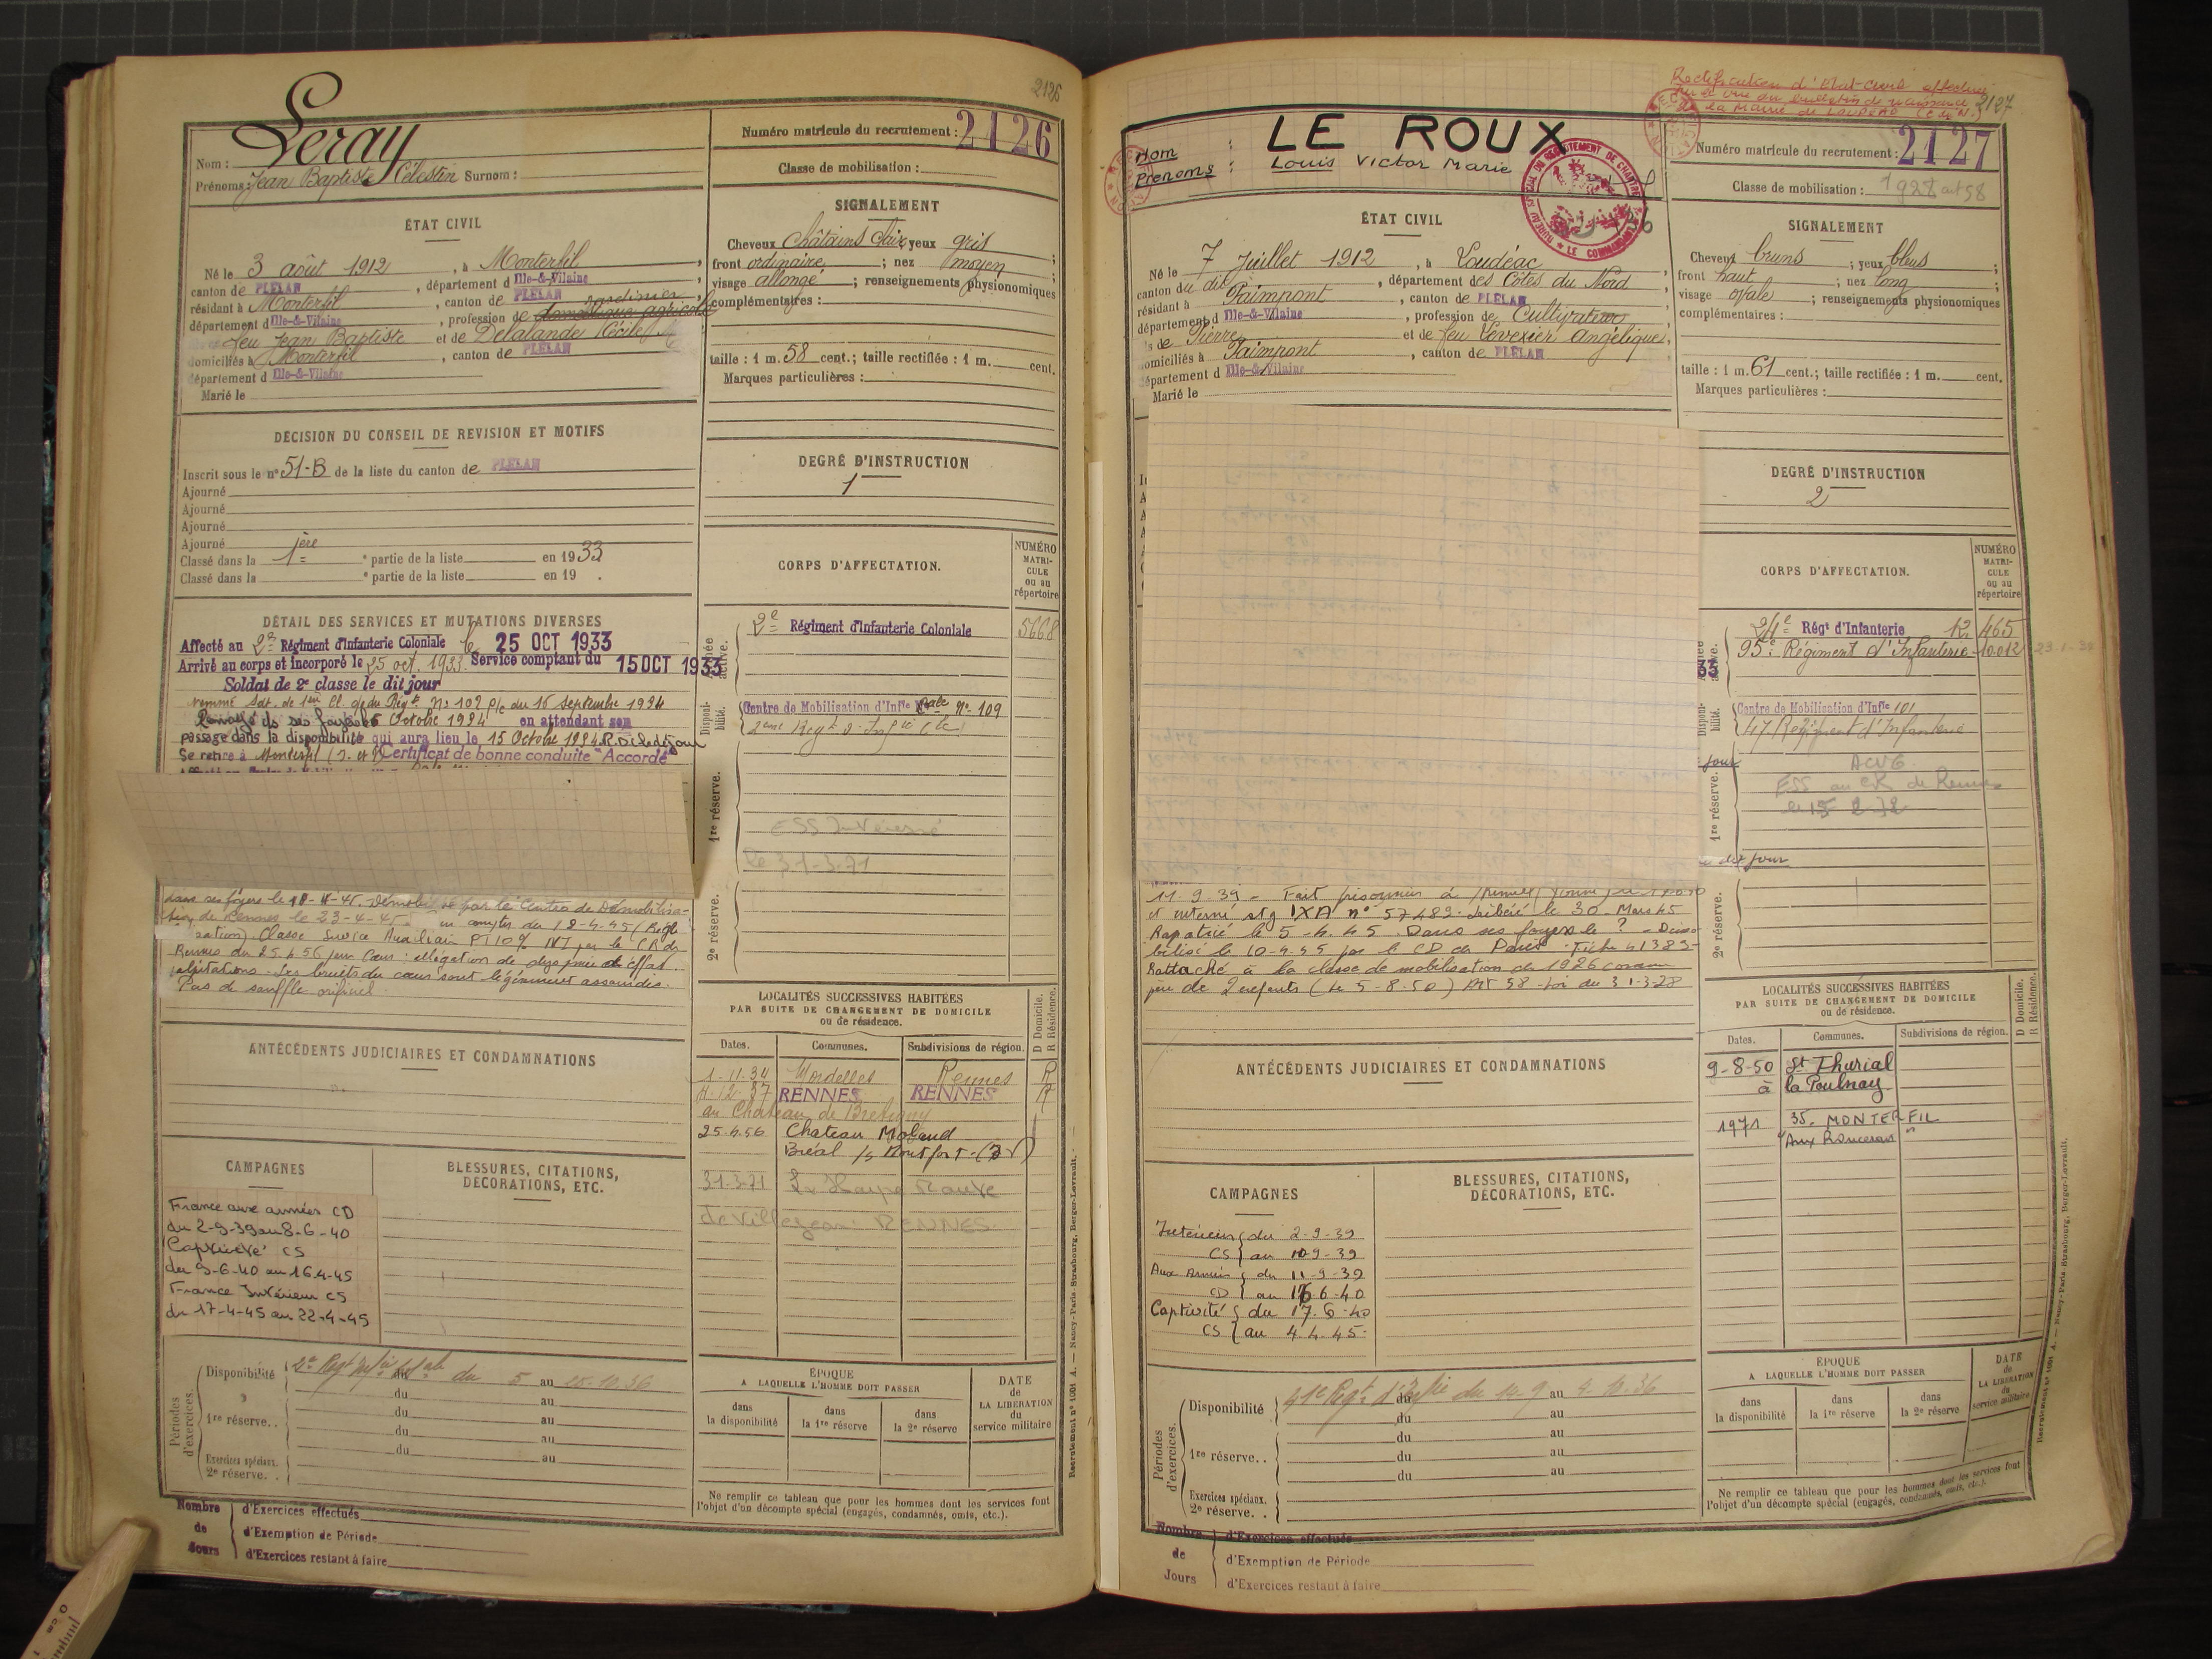 2126
Leray
Nom :
Prénoms : Jean Baptiste Célestin Surnom :
Numéro matricule du recrutement : 2126
Classe de mobilisation :
ÉTAT CIVIL
Né le 3 août 1912, à Monterfil,
canton de PLÉLAN, département d Ille-&-Vilaine
résidant à Monterfil, canton de PLÉLAN
département d Ille-&-Vilaine, profession de domestique agricole jardinier
feu Jean Baptiste et de Delalande Cécile
domiciliés à Monterfil, canton de PLÉLAN
département d Ille-&-Vilaine
Marié le
SIGNALEMENT
Cheveux châtains clair yeux gris ;
front ordinaire ; nez moyen ;
visage allongé ; renseignements physionomiques
complémentaires :
taille : 1 m. 58 cent.; taille rectifiée : 1 m. cent.
Marques particulières :
DÉCISION DU CONSEIL DE REVISION ET MOTIFS
Inscrit sous le n° 51-B de la liste du canton de PLÉLAN
Ajourné
Ajourné
Ajourné
Ajourné
Classé dans la 1ère partie de la liste en 1933
Classé dans la partie de la liste en 19 .
DEGRÉ D'INSTRUCTION
1
DÉTAIL DES SERVICES ET MUTATIONS DIVERSES
Affecté au 2e Régiment d'Infanterie Coloniale le 25 OCT 1933
Arrivé au corps et incorporé le 25 oct. 1933. Service comptant du 15 OCT 1933
Soldat de 2e classe le dit jour
nommé Sdt. de 1ère Cl. du Régt. N° 102 p/c du 16 septembre 1934
Renvoyé ds ses foyers Octobre 1934 en attendant son
passage dans la disponibilité qui aura lieu le 15 Octobre 1934. R.D.C. le dit jour
Se retire à Monterfil (I. et V) Certificat de bonne conduite "Accordé"
dans ses foyers le 18-4-45. Démobilisé par le Centre de Démobilisa-
tion de Rennes le 23-4-45 compter du 18-4-45
Classé Service Auxiliaire PI 10% par la CR de
Rennes du 25.4.56 pour Cœur : allégation de dyspnée d'effort
palpitations. Les bruits du cœur sont légèrement assourdis.
Pas de souffle orificiel.
CORPS D'AFFECTATION.
NUMÉRO MATRICULE ou au répertoire
Armée active.
2e Régiment d'Infanterie Coloniale 5668
Disponibilité.
Centre de Mobilisation d'Infie Cale N° 109
2ème Régt d'Infie Cle
1re réserve.
ESS Intéressé
le 31-3-71
2e réserve.
ANTÉCÉDENTS JUDICIAIRES ET CONDAMNATIONS
LOCALITÉS SUCCESSIVES HABITÉES
PAR SUITE DE CHANGEMENT DE DOMICILE
ou de résidence.
D Domicile.
R Résidence.
Dates. Communes. Subdivisions de région.
1-11-34 Mordelles Rennes R
4-12-37 RENNES RENNES R
au Chateau de Bretigny
25.4.56 Chateau Molaud
Bréal /s Montfort
31-3-71
de Villejean RENNES
CAMPAGNES
France aux armées CD
du 2-9-39 au 8-6-40
Captivité CS
du 9-6-40 au 16-4-45
France Intérieur CS
du 17-4-45 au 22-4-45
BLESSURES, CITATIONS,
DÉCORATIONS, ETC.
Périodes d'exercices.
Disponibilité du 5 au 25.10.36
du au
1re réserve. . du au
du au
du au
Exercices spéciaux.
2e réserve. .
ÉPOQUE
A LAQUELLE L'HOMME DOIT PASSER
dans la disponibilité
dans la 1re réserve
dans la 2e réserve
DATE de LA LIBÉRATION du service militaire
Ne remplir ce tableau que pour les hommes dont les services font
l'objet d'un décompte spécial (engagés, condamnés, omis, etc.).
Recrutement n° 1001 A. — Nancy-Paris-Strasbourg, Berger-Levrault.
Nombre de Jours
d'Exercices effectués
d'Exemption de Période
d'Exercices restant à faire
Rectification d'Etat-Civil effectuée
sur le vu du bulletin de naissance
de la Mairie de LOUDEAC (C du N.)
2127
Nom : LE ROUX
Prénoms : Louis Victor Marie
BUREAU SPÉCIAL DU RECRUTEMENT DE CHARTRES
LE COMMANDANT
Numéro matricule du recrutement : 2127
Classe de mobilisation : 1928 art 58
ÉTAT CIVIL
Né le 7 Juillet 1912, à Loudéac,
canton du dit, département des Côtes du Nord
résidant à Paimpont, canton de PLÉLAN
département d Ille-&-Vilaine, profession de Cultivateur
s de Pierre et de feu Leverier Angélique,
domiciliés à Paimpont, canton de PLÉLAN
département d Ille-&-Vilaine
Marié le
SIGNALEMENT
Cheveux bruns ; yeux bleus ;
front haut ; nez long ;
visage ovale ; renseignements physionomiques
complémentaires :
taille : 1 m. 61 cent.; taille rectifiée : 1 m. cent.
Marques particulières :
DEGRÉ D'INSTRUCTION
2
CORPS D'AFFECTATION.
NUMÉRO MATRICULE ou au répertoire
41e Régt d'Infanterie 465
95e Régiment d'Infanterie 10.012
Disponibilité.
Centre de Mobilisation d'Infie 101
47 Régiment d'Infanterie
1re réserve.
ACVG
ESS au CR de Rennes
le 15-2-72
jour
dit jour
2e réserve.
11.9.39 - Fait prisonnier à
et interné stg IXA n° 57482. Libéré le 30 Mars 45
Rapatrié le 5-4-45. Dans ses foyers le ? - Démo-
bilisé le 10-4-45 par le CD de Paris. Fiche 41383-
Rattaché à la classe de mobilisation de 1926 comme
père de 2 enfants (le 5-8-50) Art 58 loi du 31-3-28
ANTÉCÉDENTS JUDICIAIRES ET CONDAMNATIONS
LOCALITÉS SUCCESSIVES HABITÉES
PAR SUITE DE CHANGEMENT DE DOMICILE
ou de résidence.
D Domicile.
R Résidence.
Dates. Communes. Subdivisions de région.
9-8-50 St Thurial
à la Poulnay
1971 35. MONTERFIL
CAMPAGNES
Intérieur du 2-9-39
CS au 10-9-39
Aux Armées du 11-9-39
CD au 16.6-40
Captivité du 17.6-40
CS au 4.4.45-
BLESSURES, CITATIONS,
DÉCORATIONS, ETC.
Périodes d'exercices.
Disponibilité 41e Régt d'Infie du au 36
du au
1re réserve. . du au
du au
Exercices spéciaux.
2e réserve. .
ÉPOQUE
A LAQUELLE L'HOMME DOIT PASSER
dans la disponibilité
dans la 1re réserve
dans la 2e réserve
DATE de LA LIBÉRATION du service militaire
Ne remplir ce tableau que pour les hommes dont les services font
l'objet d'un décompte spécial (engagés, condamnés, omis, etc.).
Recrutement n° 1001 A. — Nancy-Paris-Strasbourg, Berger-Levrault.
Nombre de Jours
d'Exercices effectués
d'Exemption de Période
d'Exercices restant à faire